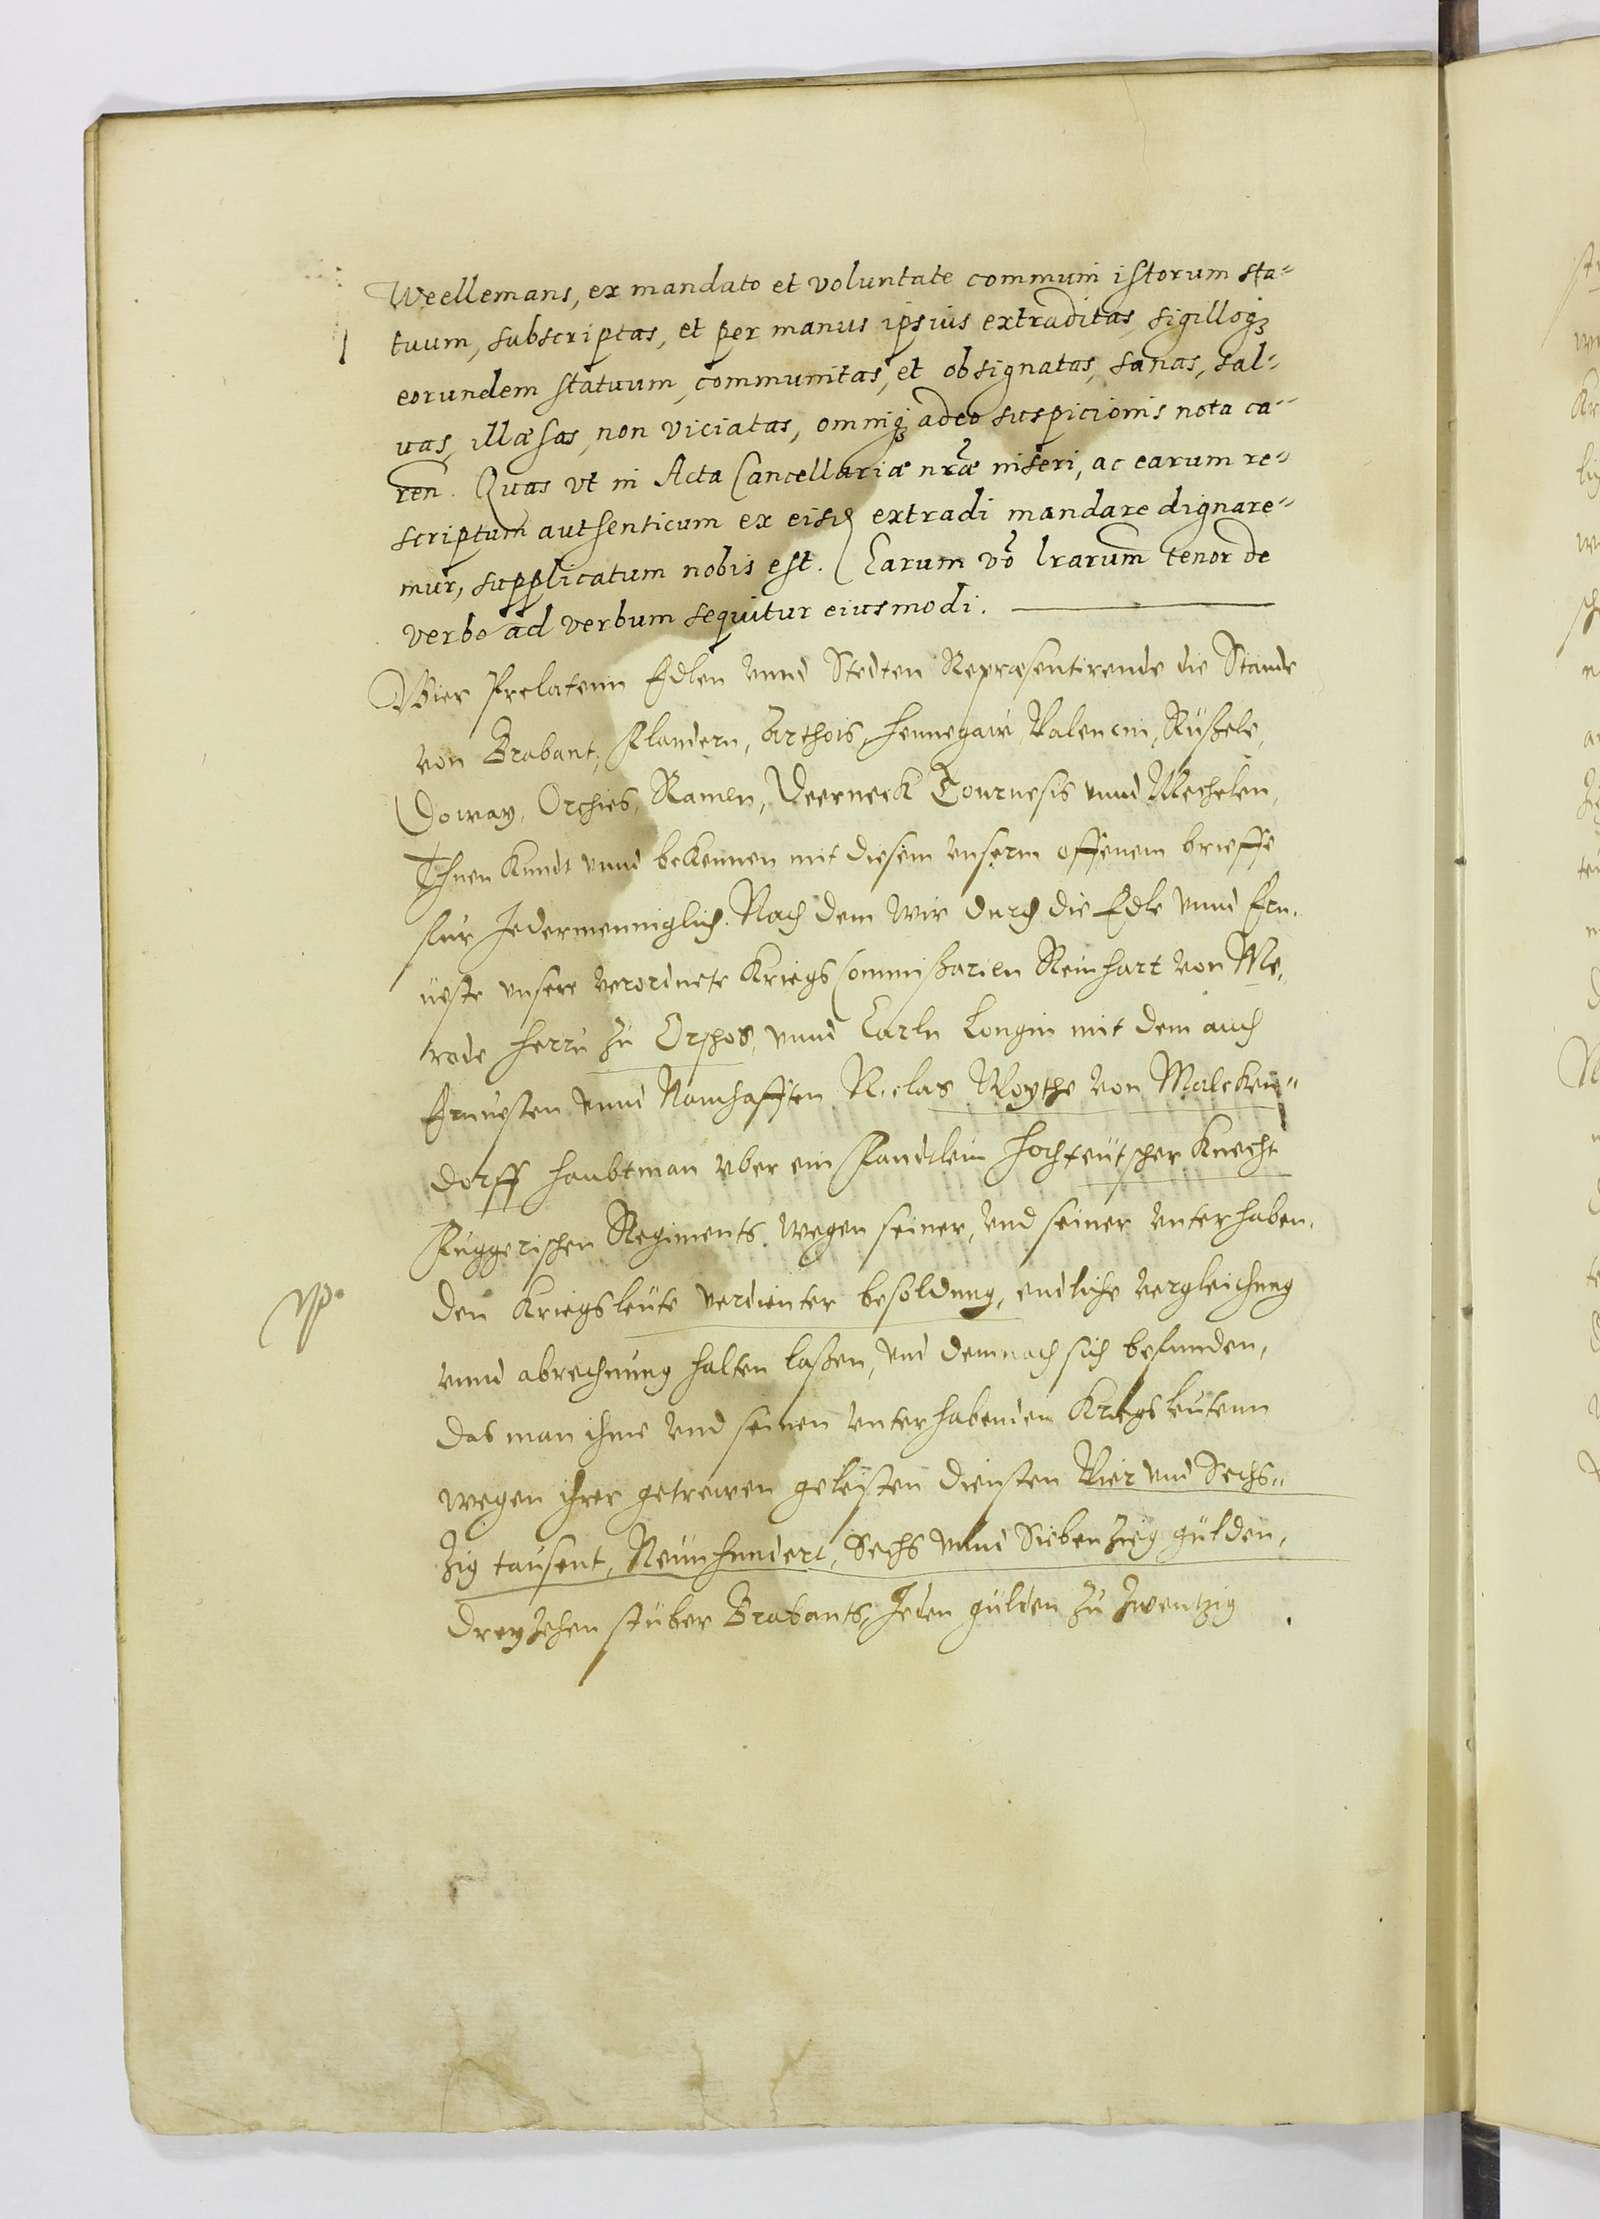 Weellemans, ex mandato et voluntate communi istorum sta=
tuum, subscriptas, et per manus ipsius extraditas, sigilloqꝫ
eorundem statuum, communitas, et obsignatas, sanas, sal=
uas, illæsas, non viciatas, omniqꝫ adeo suspicionis nota ca=
ren̄. Quas vt in Acta Cancellariæ nr̄æ inseri, ac earum re=
scriptum authenticum ex eisd extradi mandare dignare=
mur, supplicatum nobis est. Earum vō lrarum tenor de
verbo ad verbum sequitur eiusmodi.
Wier Prelatenn Edlen vnnd Stedten Repræsentirende die Stände
von Brabant, Flandern, Arthois, Hennegaw, Valencin, Rüßele,
Doway, Orchies, Namen, Deerneck Tournesis vnnd Mechelen,
Thuen Kundt vnnd bekennen mit diesem vnserm offenem brieffe
für Jedermenniglich. Nach dem Wir durch die Edle vnnd Ern,
ueste vnsere verordnete Kriegs Commißarien Reinhart von Me,
rode Herrn zu Orschos, vnnd Carln Longin mit dem auch
Ernuesten vnnd Namhafften Niclas Moythe von Malcken=
dorff Haubtman vber ein Fandlein Hochteütscher Knecht
Fuggerischen Regiments. wegen seiner, vnd seiner vnterhaben,
den Kriegsleüte verdienter besoldung, endliche vergleichung
vnnd abrechnung halten laßen, vnd demnach sich befunden,
das man ihme vnd seinen vnterhabenden Kriegsleutenn
wegen ihrer getrewen geleisten diensten Vier vnd Sechs=
zig tausent, Neunhundert, Sechs vnnd Siebenzieg gülden,
Dreyzehen stüber Brabants, Jeden gülden zu zwentzig